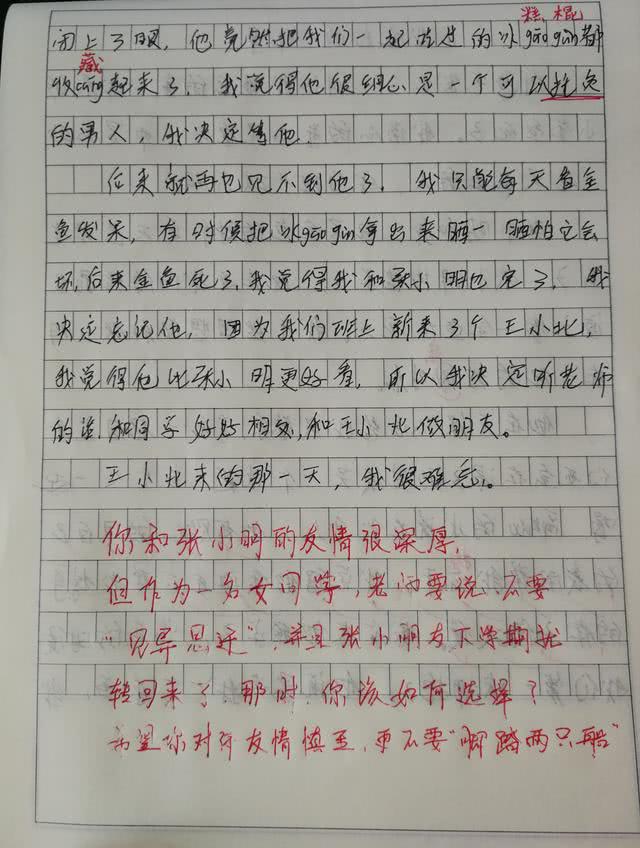 糕 棍
闭上了眼，他竟然把我们一起吃过的冰gāo gùn都
藏
收cáng起来了，我觉得他很细心是一个可以托负
的男人，我决定等他.
后来就再也见不到他了，我只能每天看金
鱼发呆，有时候把冰gāo gùn拿出来晒一晒怕它会
坏，后来金鱼死了，我觉得我和张小明也完了，我
决定忘记他，因为我们班上新来了个王小北，
我觉得他比张小明更好看，所以我决定听老师
的话，和同学好好相处，和王小北做朋友。
王小北来的那一天，我很难忘。
你和张小明的友情很深厚，
但作为一名女同学，老师要说，不要
“见异思迁”，并且张小明友下学期就
转回来了，那时，你该如何选择？
希望你对待友情慎重，更不要“脚踏两只船”